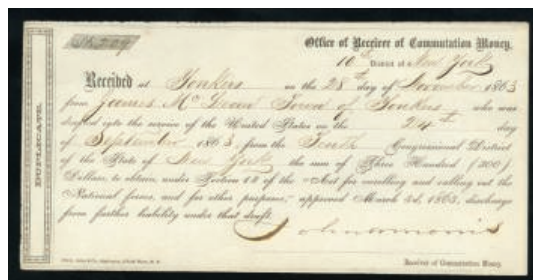 Office of Receiver of Commutation Money,
10th District of New York
Received at Yonkers on the 28th day of November 1863
from James Mc Town of Yonkers who was
drafted into the service of the United States on the 24th day
of September 1863, from the Tenth Congressional District
of the State of New York the sum of Three Hundred (300)
Dollars, to obtain, under Section 13 of the "Act for enrolling and calling out the
National forces, and for other purposes," approved March 3d, 1863, discharge
from further liability under that draft.
Receiver of Commutation Money.
DUPLICATE.